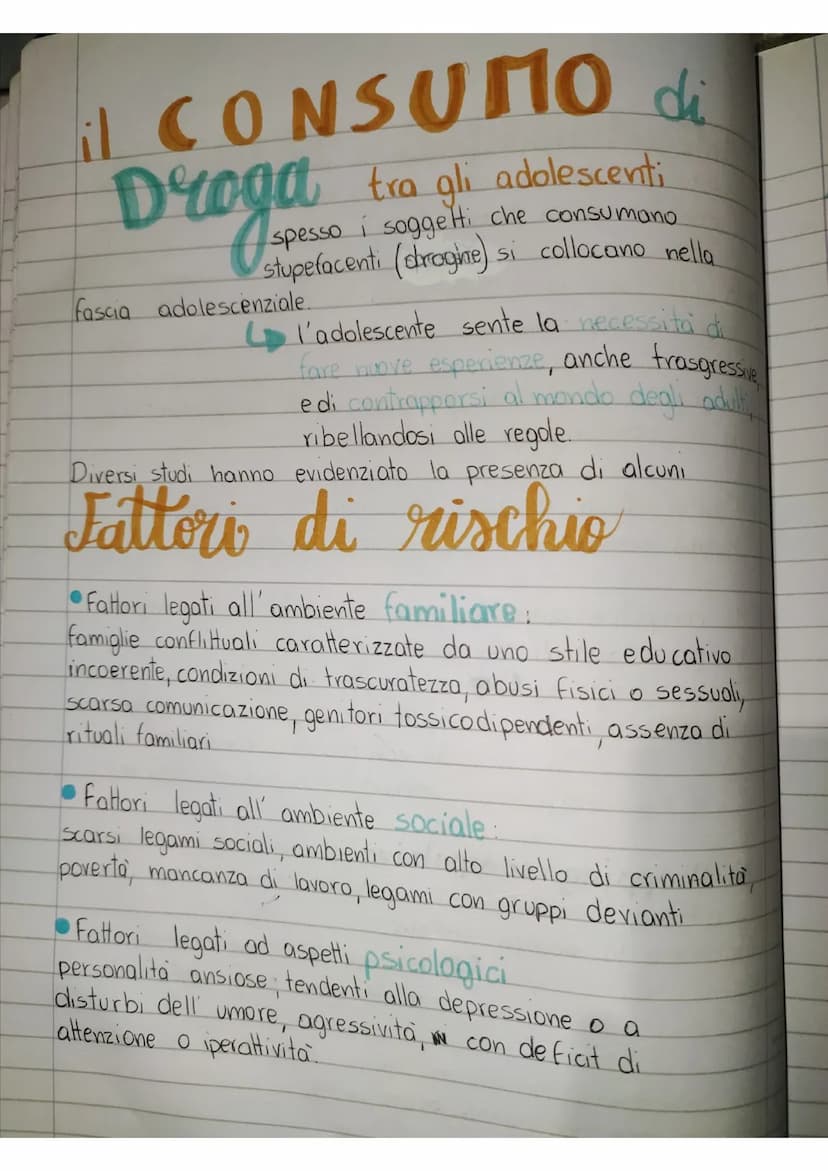 il CONSUMO di
Droga tra gli adolescenti
spesso i soggetti che consumano
stupefacenti (droghe) si collocano nella
fascia adolescenziale.
↳ l'adolescente sente la necessità di
fare nuove esperienze, anche trasgressive,
e di contrapporsi al mondo degli adulti,
ribellandosi alle regole.
Diversi studi hanno evidenziato la presenza di alcuni
Fattori di rischio
• Fattori legati all'ambiente familiare:
famiglie conflittuali caratterizzate da uno stile educativo
incoerente, condizioni di trascuratezza, abusi fisici o sessuali,
scarsa comunicazione, genitori tossicodipendenti, assenza di
rituali familiari
• Fattori legati all'ambiente sociale:
scarsi legami sociali, ambienti con alto livello di criminalità,
povertà, mancanza di lavoro, legami con gruppi devianti
• Fattori legati ad aspetti psicologici
personalità ansiose; tendenti alla depressione o a
disturbi dell'umore, agressività, con deficit di
attenzione o iperattività.